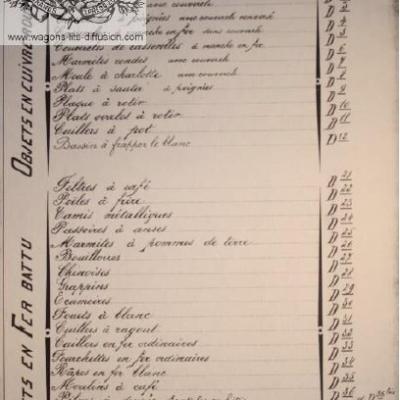 www.wagons-lits-diffusion.com
OBJETS EN CUIVRE
couvercle
poignées avec couvercle D 4
en fer sans couvercle D 5
Couvercles de casserolles à manche en fer D 6
Marmites rondes avec couvercle D 7
Moule à charlotte avec couvercle D 8
Plats à sauter à poignées D 9
Plaque à rotir D 10
Plats ovales à rotir D 11
Cuillers à pot D 12
Bassin à frapper le blanc
ETS EN FER BATTU
Filtres à café D 21
Poëles à frire D 22
Tamis métalliques D 23
Passoires à anses D 24
Marmites à pommes de terre D 25
Bouilloires D 26
Chinoises D 27
Grappins D 28
Ecumoires D 29
Fouets à blanc D 30
Cuillers à ragout D 31
Cuillers en fer ordinaires D 32
Fourchettes en fer ordinaires D 33
Râpes en fer blanc D 34
Moulins à café D 35
D 36